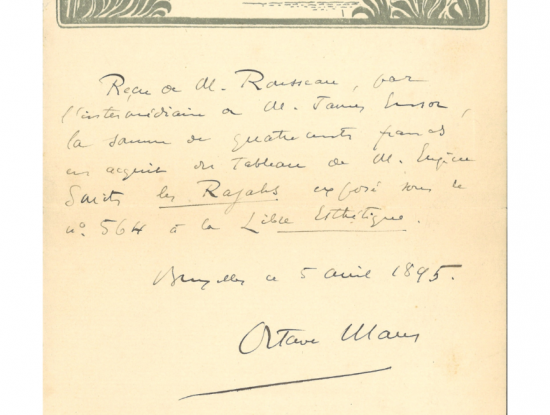 Reçu de M. Rousseau, par
l'intermédiaire de M. James Ensor,
la somme de quatre cents francs
en acquit du tableau de M. Eugène
Smits les Rajahs exposé sous le
n° 564 à la Libre Esthétique.
Bruxelles ce 5 avril 1895.
Octave Maus